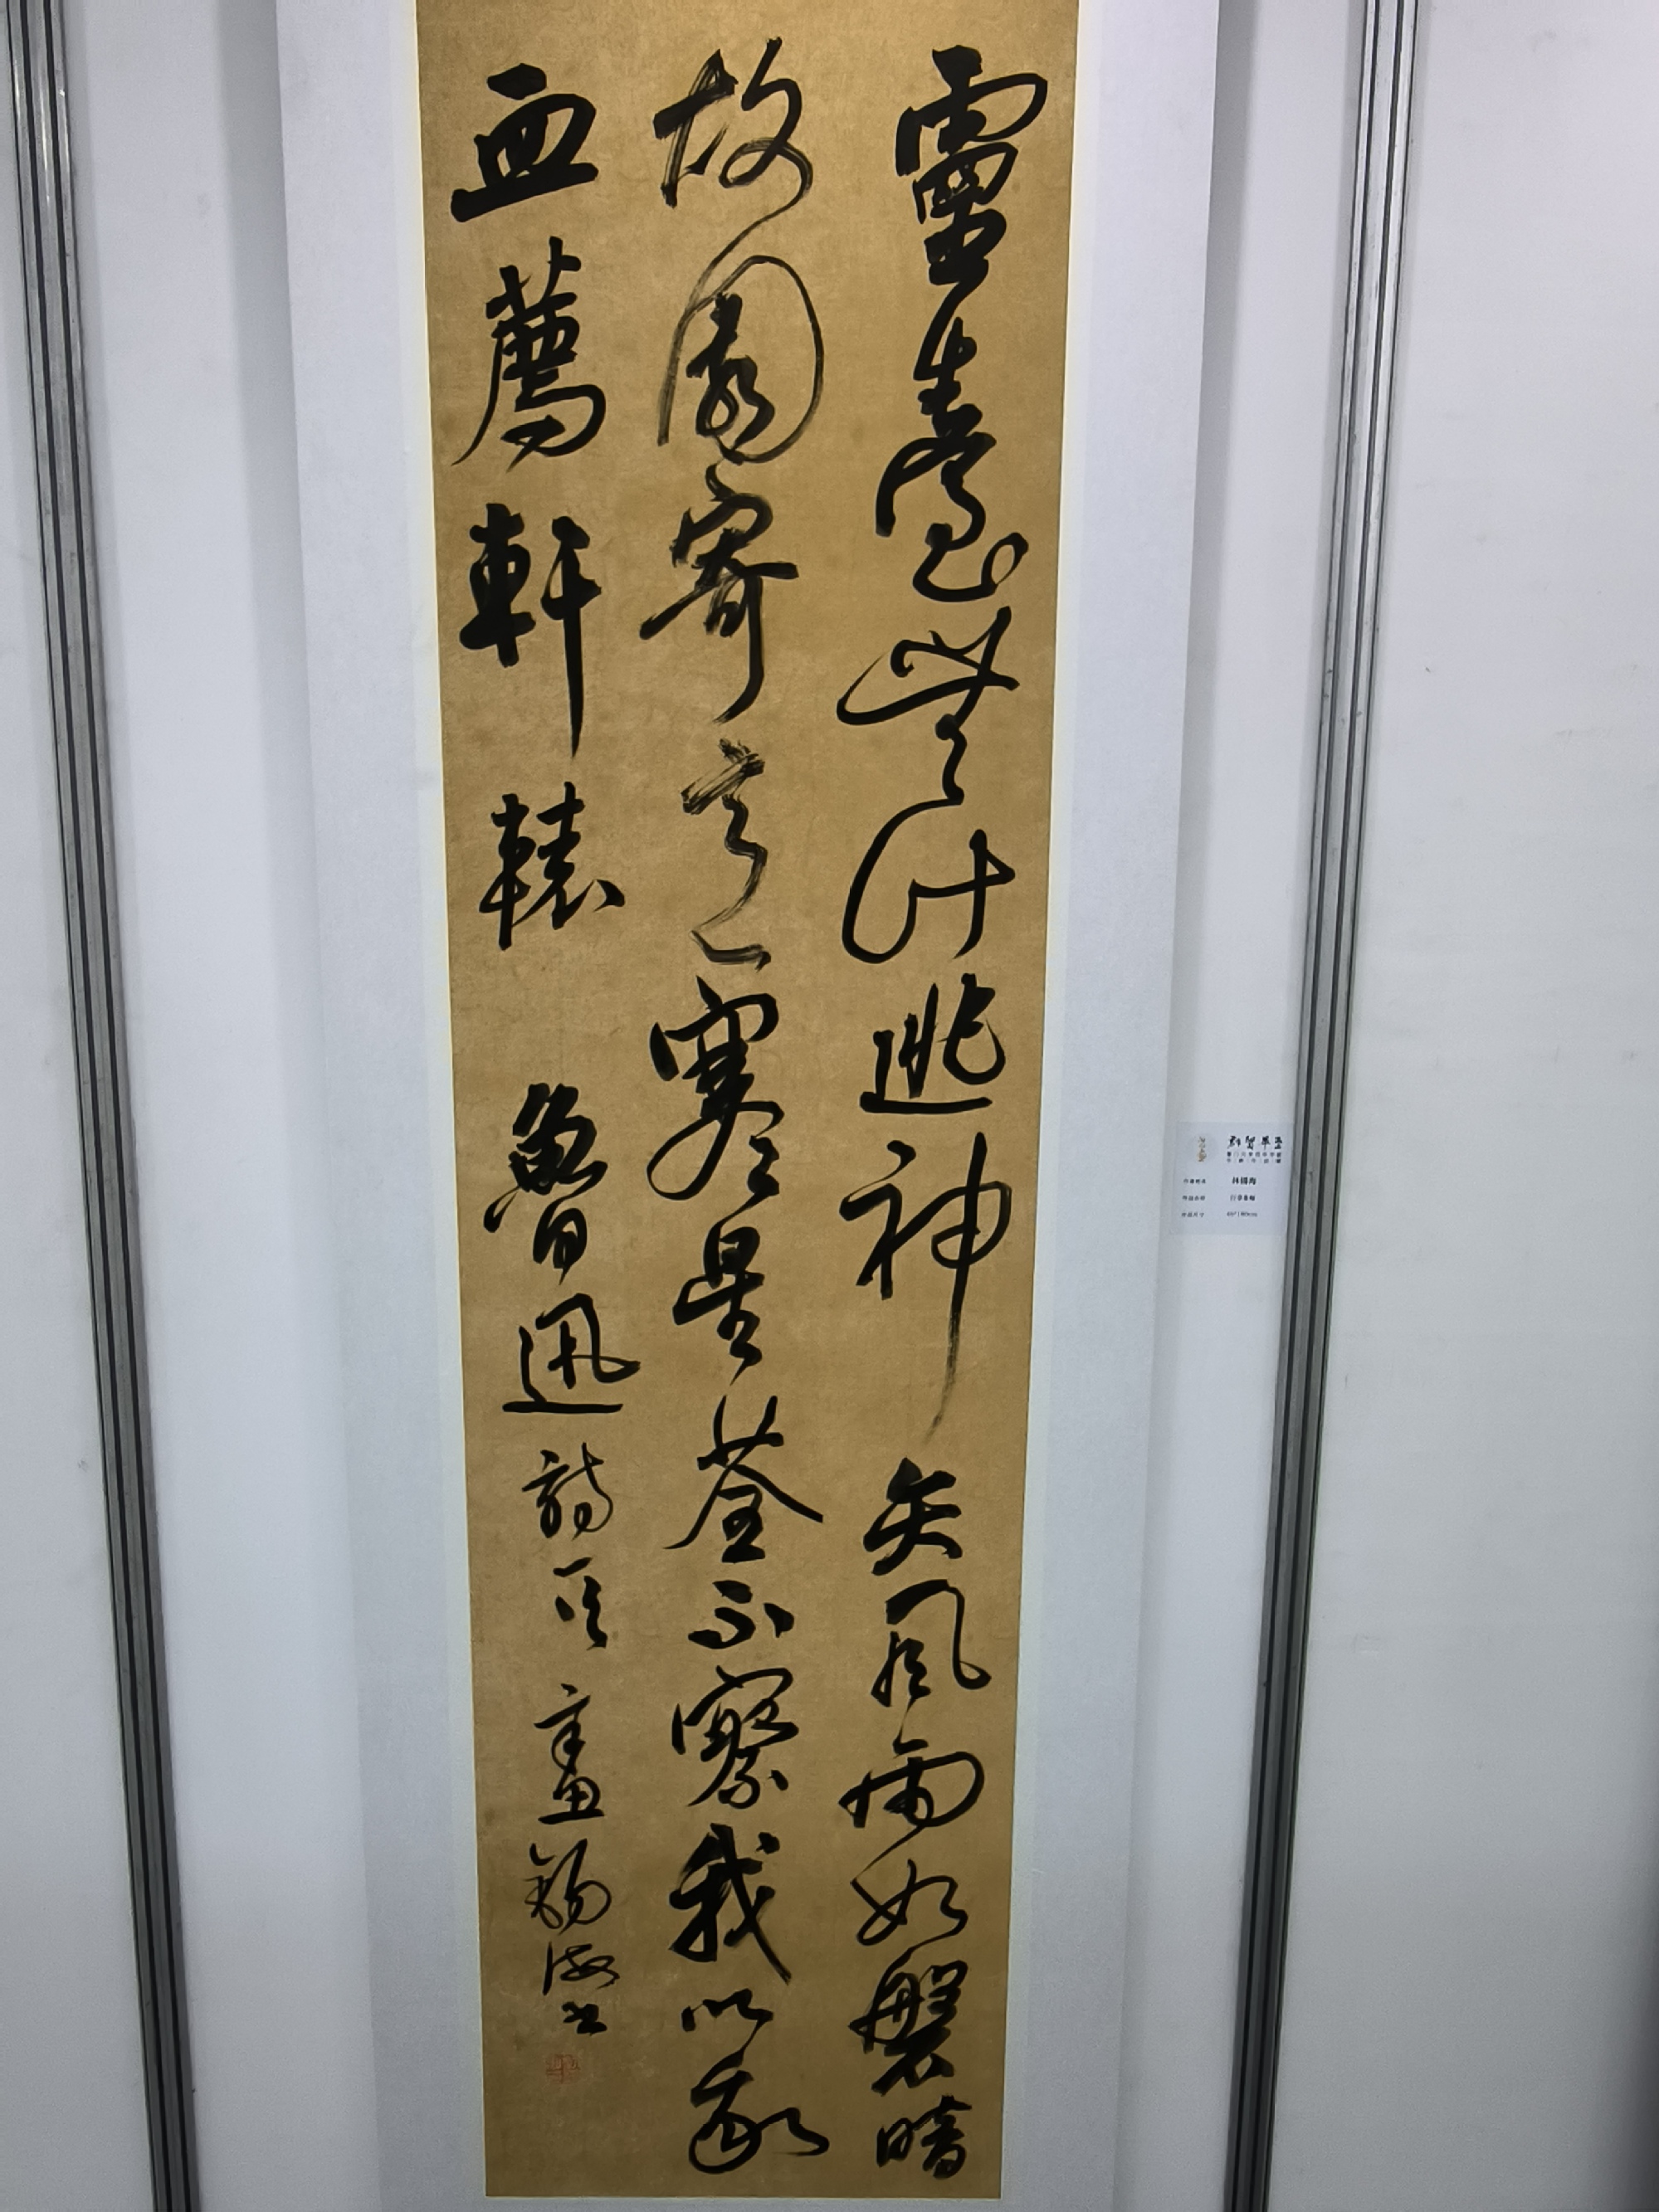 靈臺無計逃神矢風雨如磐暗
故園寄意寒星荃不察我以我
血薦軒轅 魯迅詩 錫海書
作者姓名 林锡海
作品名称 行草条幅
作品尺寸